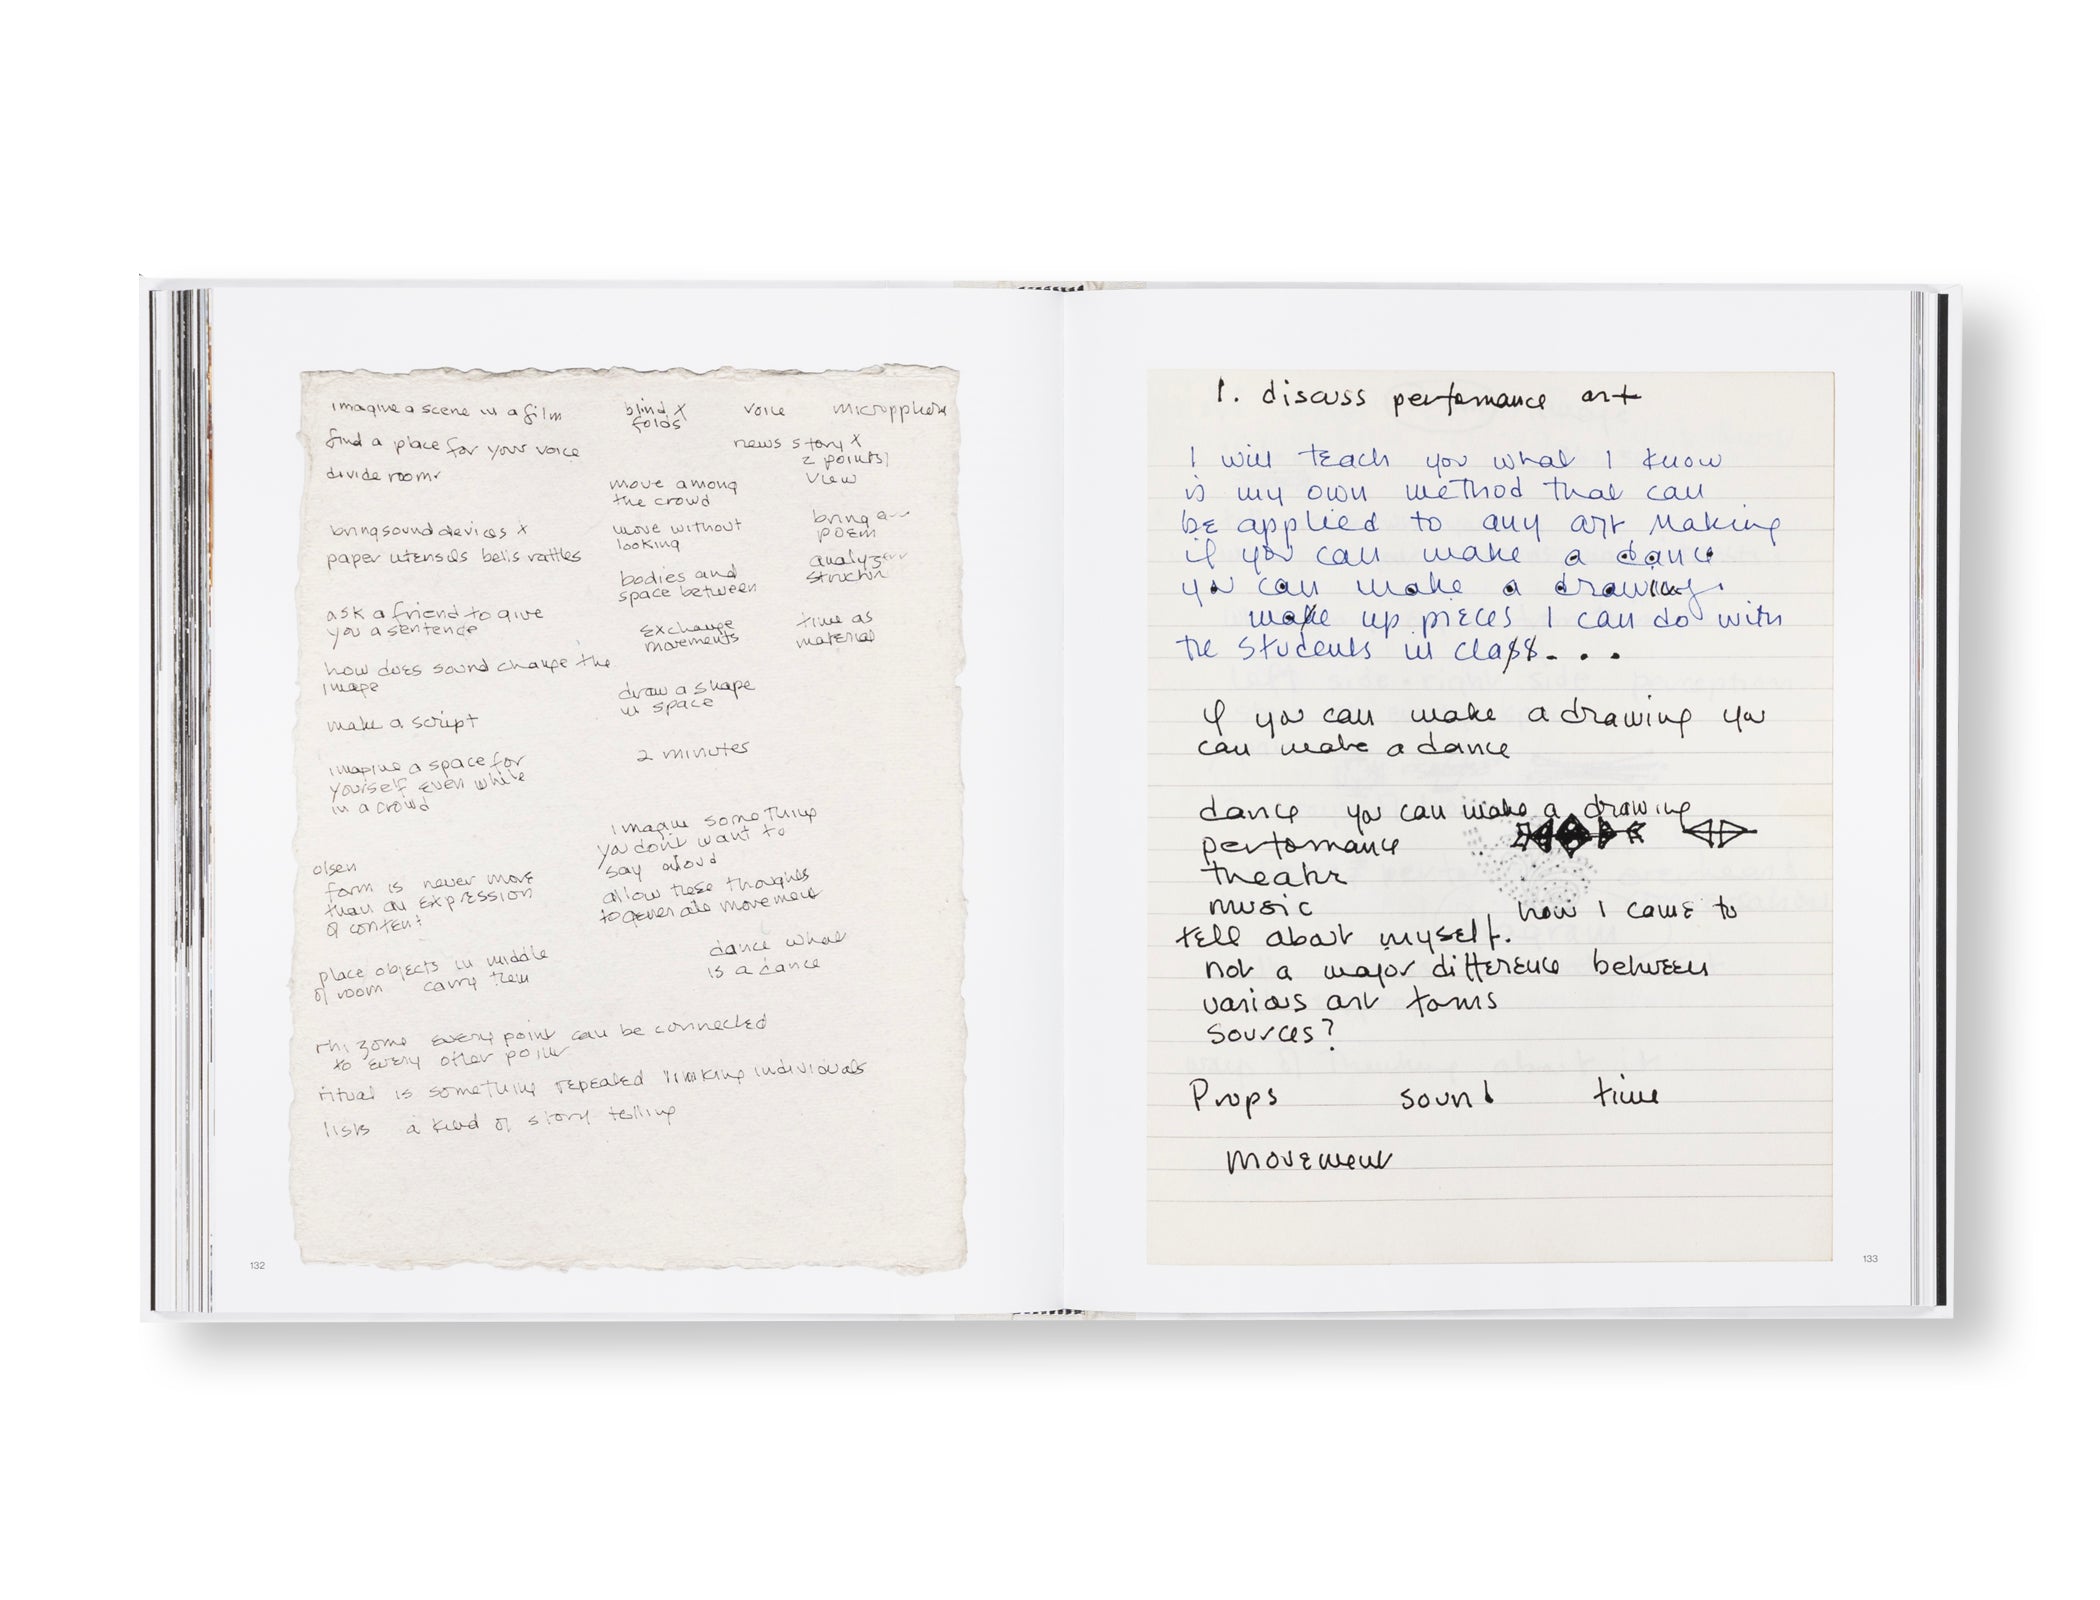 imagine a scene in a film
find a place for your voice
divide room
bring sound devices x
paper utensils bells rattles
ask a friend to give
you a sentence
how does sound change the
image
make a script
imagine a space for
yourself even while
in a crowd
olsen
form is never more
than an expression
of content
place objects in middle
of room carry them
blind x
folds
move among
the crowd
move without
looking
bodies and
space between
exchange
movements
draw a shape
in space
2 minutes
imagine something
you don't want to
say aloud
allow these thoughts
to generate movement
dance what
is a dance
voice
news story x
2 points
view
bring a
poem
analyze
time as
material
rhizome every point can be connected
to every other point
ritual is something repeated linking individuals
lists a kind of story telling
132
1. discuss performance art
I will teach you what I know
is my own method that can
be applied to any art making
if you can make a dance
you can make a drawing.
make up pieces I can do with
the students in class...
if you can make a drawing you
can make a dance
dance you can make a drawing
performance
theatre
music how I came to
tell about myself.
not a major difference between
various art forms
sources?
Props sound time
movement
133